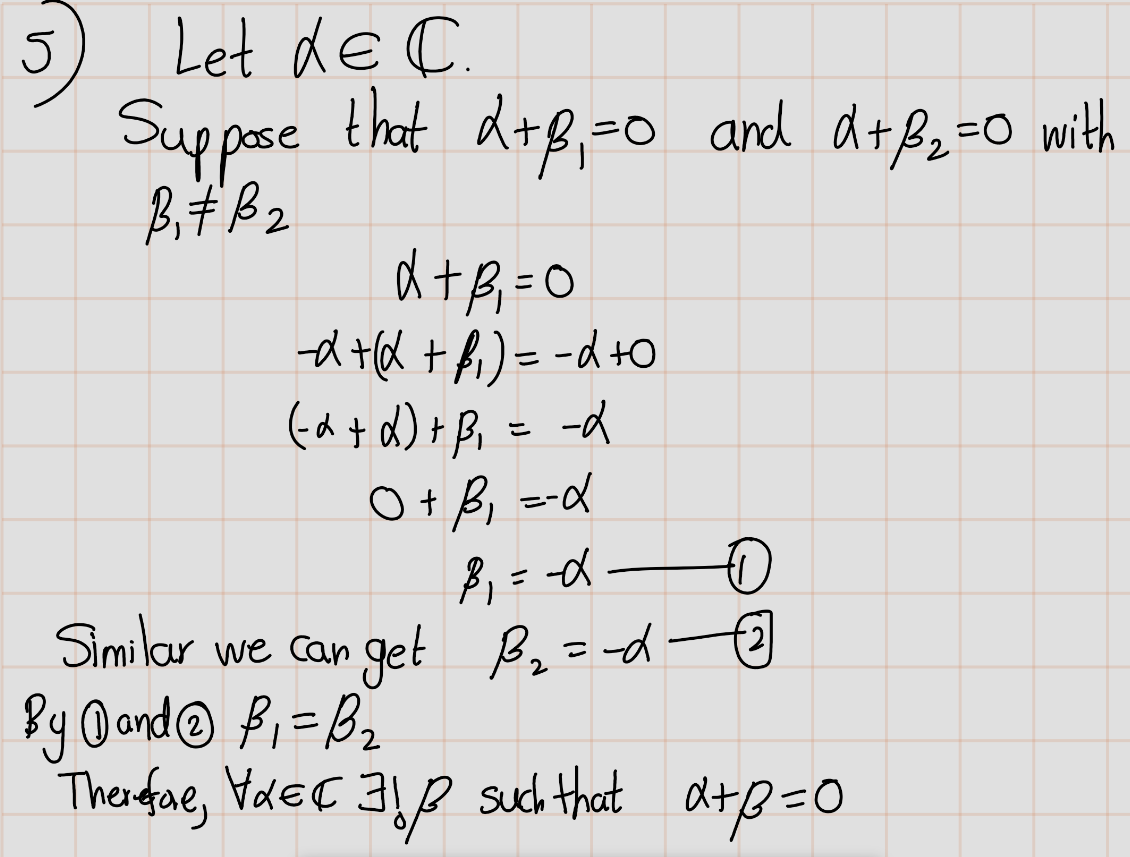 5) Let α ∈ ℂ.
Suppose that α+β₁=0 and α+β₂=0 with
β₁≠β₂
α+β₁=0
-α+(α+β₁)=-α+0
(-α+α)+β₁ = -α
0+β₁ =-α
β₁ = -α ——— ①
Similar we can get β₂ = -α —— ②
By ① and ② β₁=β₂
Therefore, ∀α∈ℂ ∃!β such that α+β=0